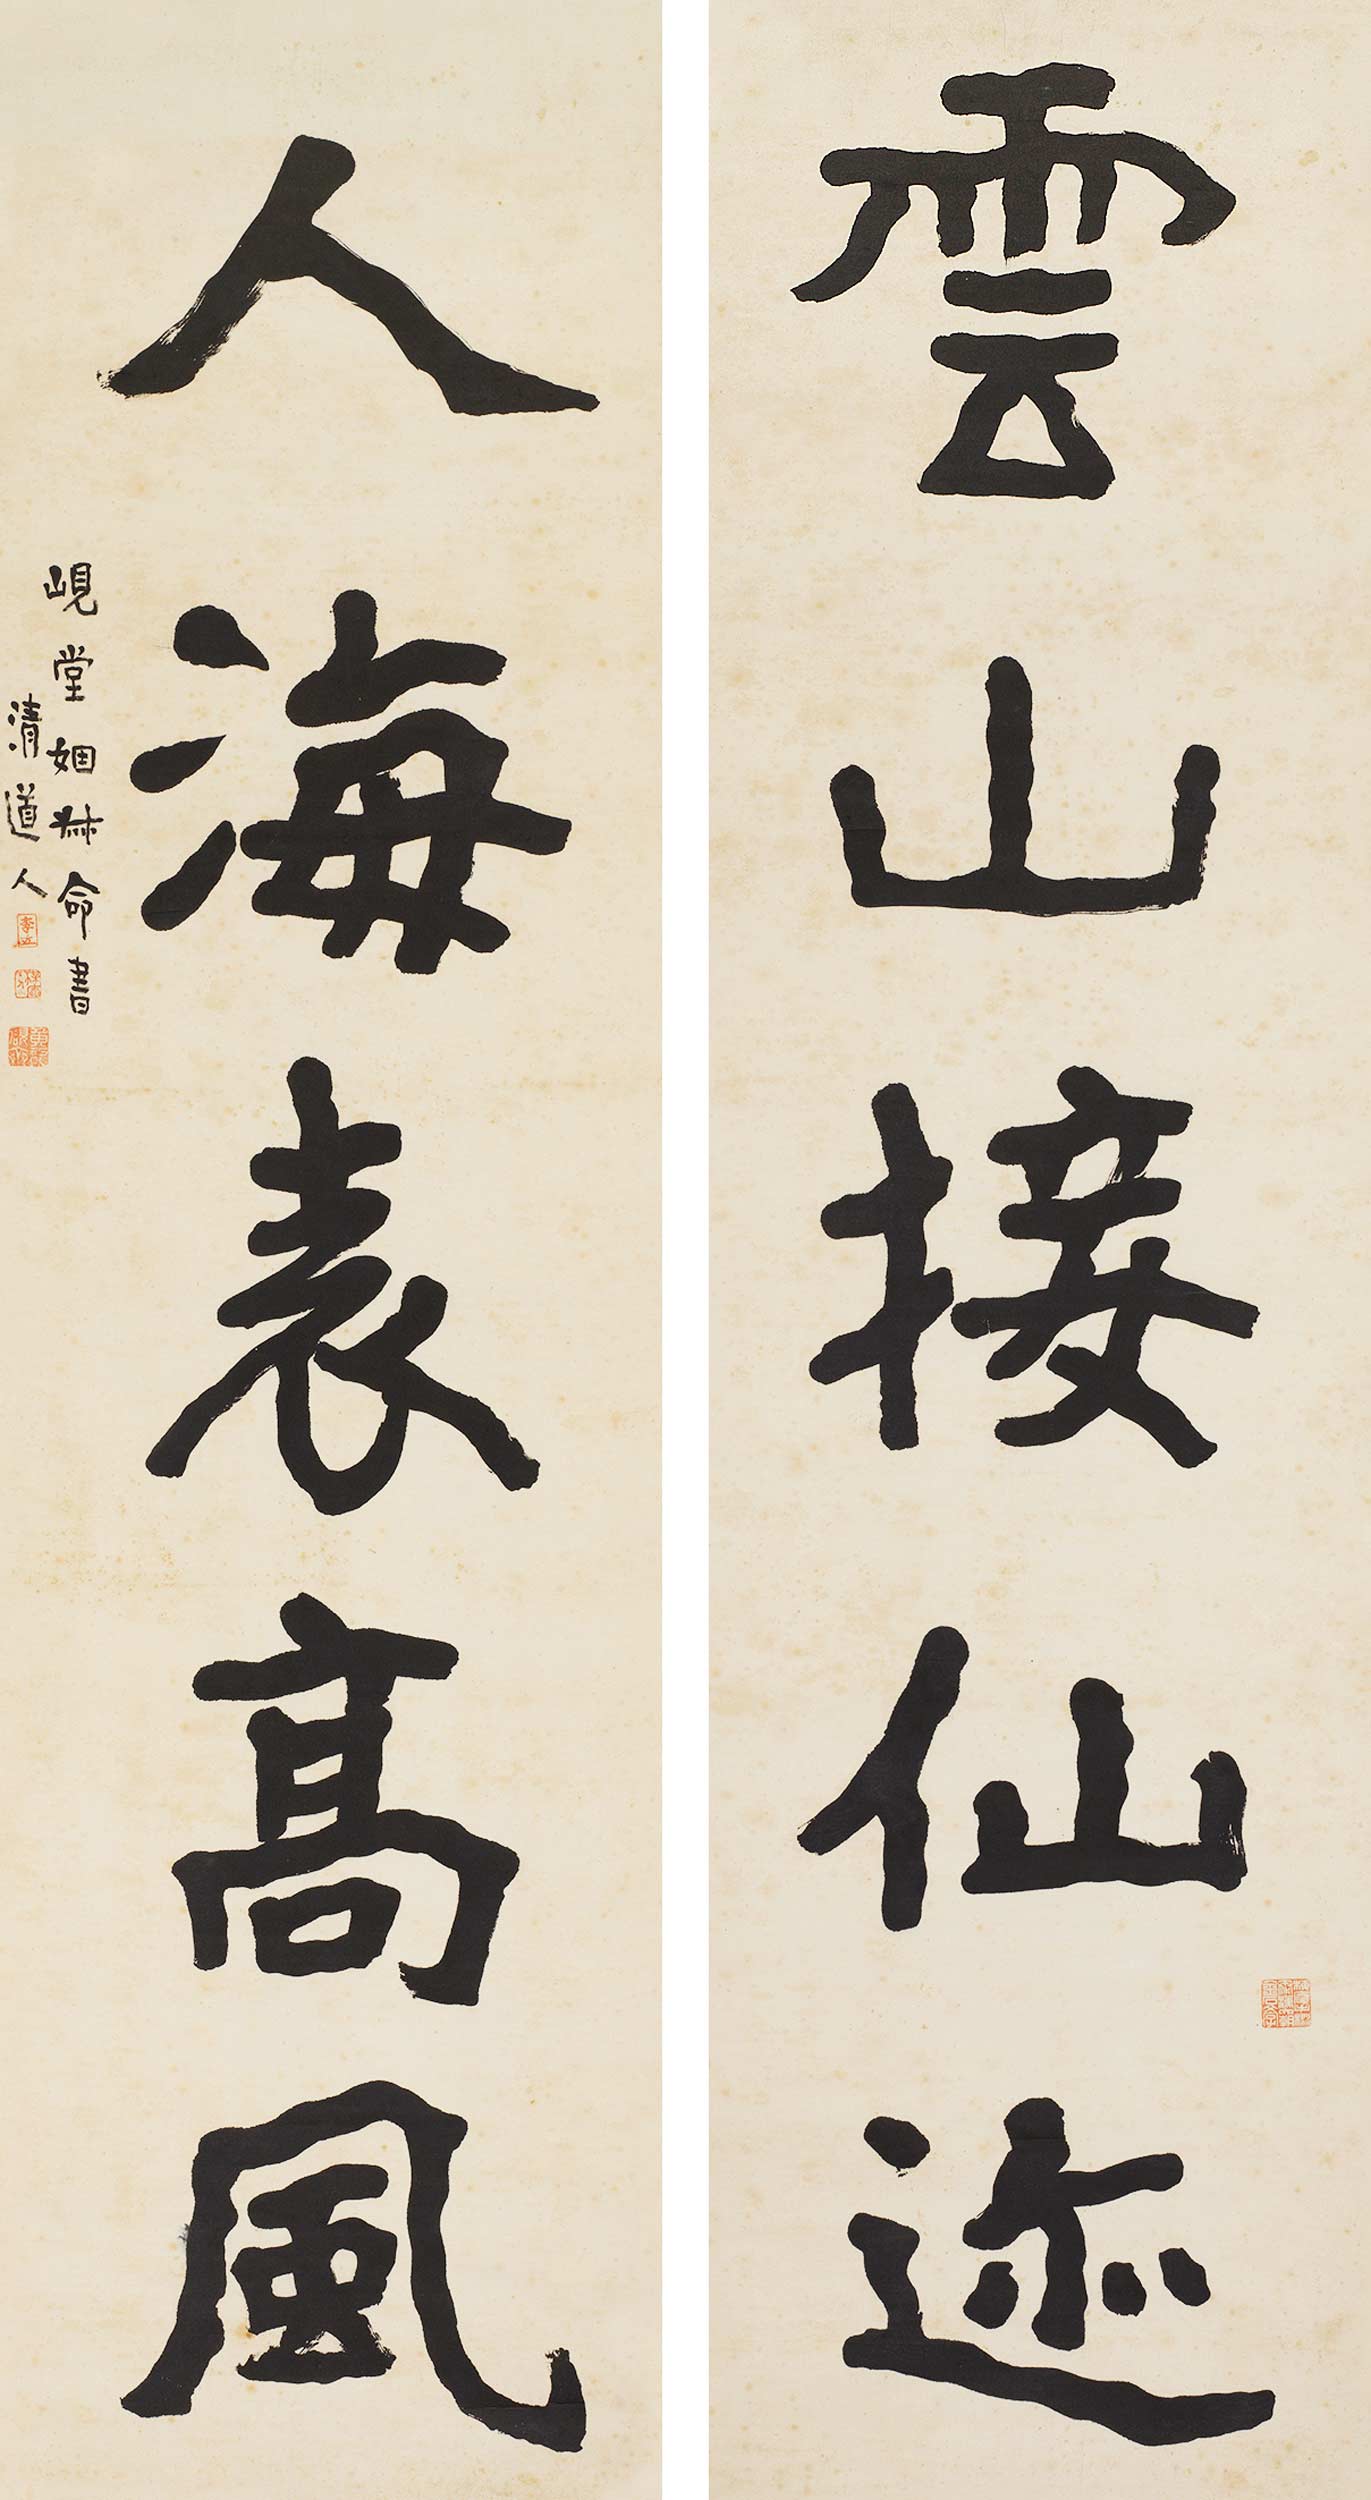 雲山接仙迹
人海表高風
峴堂姻叔命書
清道人